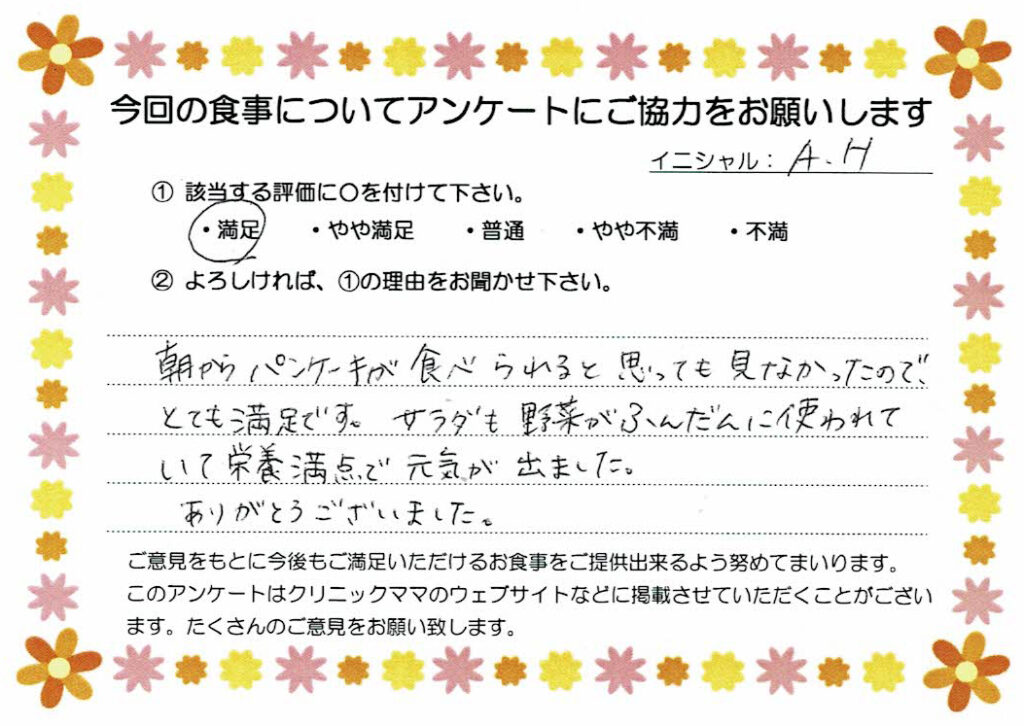 今回の食事についてアンケートにご協力をお願いします
イニシャル：A.H
① 該当する評価に〇を付けて下さい。
・満足 ・やや満足 ・普通 ・やや不満 ・不満
② よろしければ、①の理由をお聞かせ下さい。
朝からパンケーキが食べられると思っても見なかったので、
とても満足です。サラダも野菜がふんだんに使われて
いて栄養満点で元気が出ました。
ありがとうございました。
ご意見をもとに今後もご満足いただけるお食事をご提供出来るよう努めてまいります。
このアンケートはクリニックママのウェブサイトなどに掲載させていただくことがござい
ます。たくさんのご意見をお願い致します。